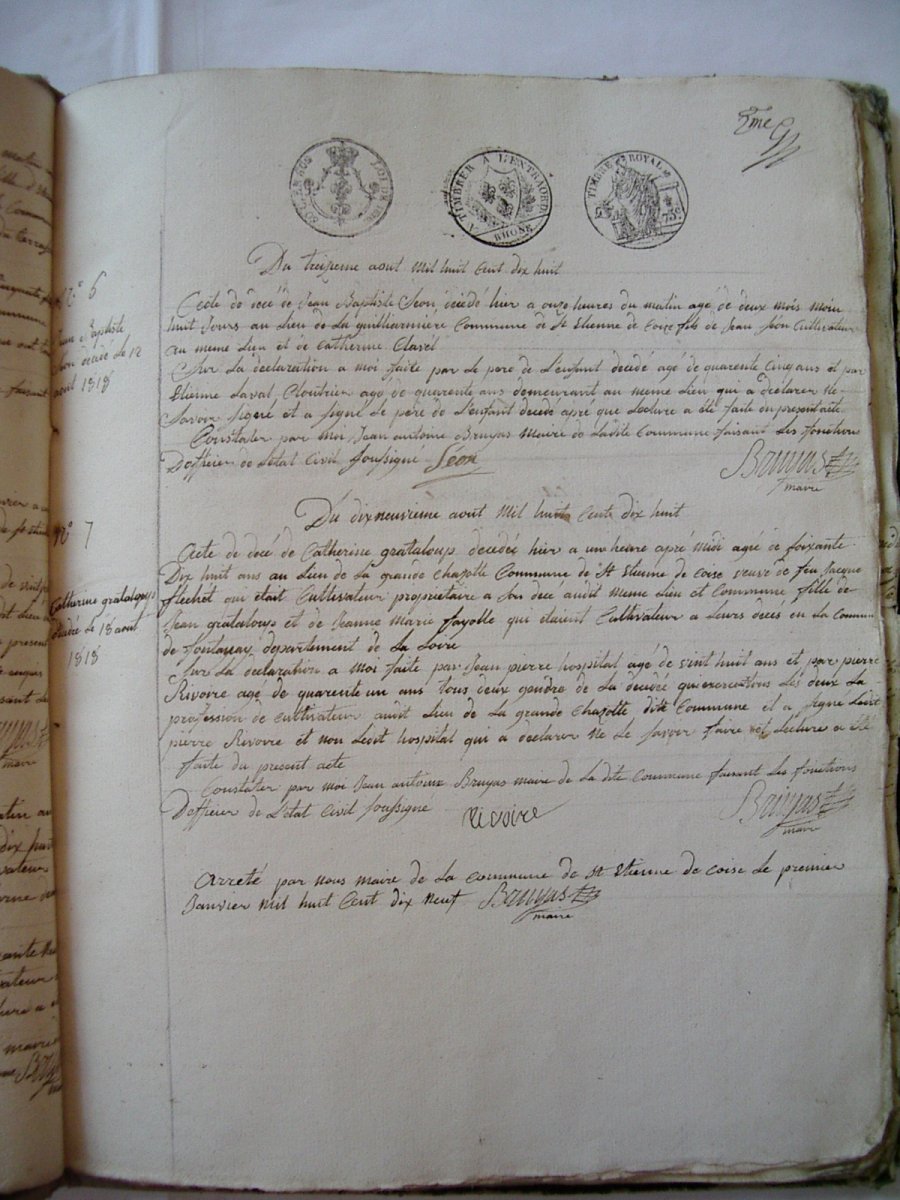 5me
A TIMBRER A L'EXTRAORD.
RHONE
TIMBRE ROYAL
Du treizieme aout Mil huit Cent dix huit
N° 6
Jean Baptiste
Séon décédé le 12
aout 1818
Acte de décé de Jean Baptiste Séon, décédé hier a onze heures du matin agé de deux mois moin
huit Jours au Lieu de La guilliermière Commune de St Etienne de Coize fils de Jean Séon Cultivateur
au meme Lieu et de Catherine Clavel
Sur La declaration a moi faite par Le pere de L'enfant decédé agé de quarente Cinq ans et par
Etienne Laval, Cloutrier agé de quarente ans demeurant au meme Lieu qui a déclarer ne
Savoir Signé et a Signé Le père de L'enfant decédé apré que Lecture a été faite du present acte
Constater par moi Jean antoine Bruyas Maire de Ladite Commune faisant Les fonction
D'officier de L'etat Civil Soussigne Séon
Bruyas
maire
Du dixneuvieme aout Mil huit Cent dix huit
N° 7
Catherine grataloup
décédée le 18 aout
1818
Acte de décé de Catherine grataloup decedée hier a un heure apré midi agée de Soixante
Dix huit ans au Lieu de La grande Chazotte Commune de St Etienne de coise veuve de feu Jacque
flechet qui était Cultivateur propriétaire a Son décé audit meme Lieu et Commune fille de
Jean grataloup et de Jeanne Marie fayolle qui étaient Cultivateur a Leurs décés en La Commune
de fontanay, département de La Loire
Sur La déclaration a Moi faite par Jean pierre hospital agé de vint huit ans et par pierre
Rivoire age de quarente un ans tous deux gendre de La décédé qui exercent tous Les deux La
profession de Cultivateur audit Lieu de La grande Chazotte dite Commune et a Signé Ledit
pierre Rivoire et non Ledit hospital qui a declarer ne Le Savoir faire et Lecture a été
faite du present acte
Constater par moi Jean antoine Bruyas maire de La dite Commune faisant Les fonctions
D'officier de L'etat Civil Soussigne Rivoire
Bruyas
maire
Arreté par nous maire de La Commune de St Etienne de coise Le premier
Janvier Mil huit Cent dix Neuf Bruyas
maire